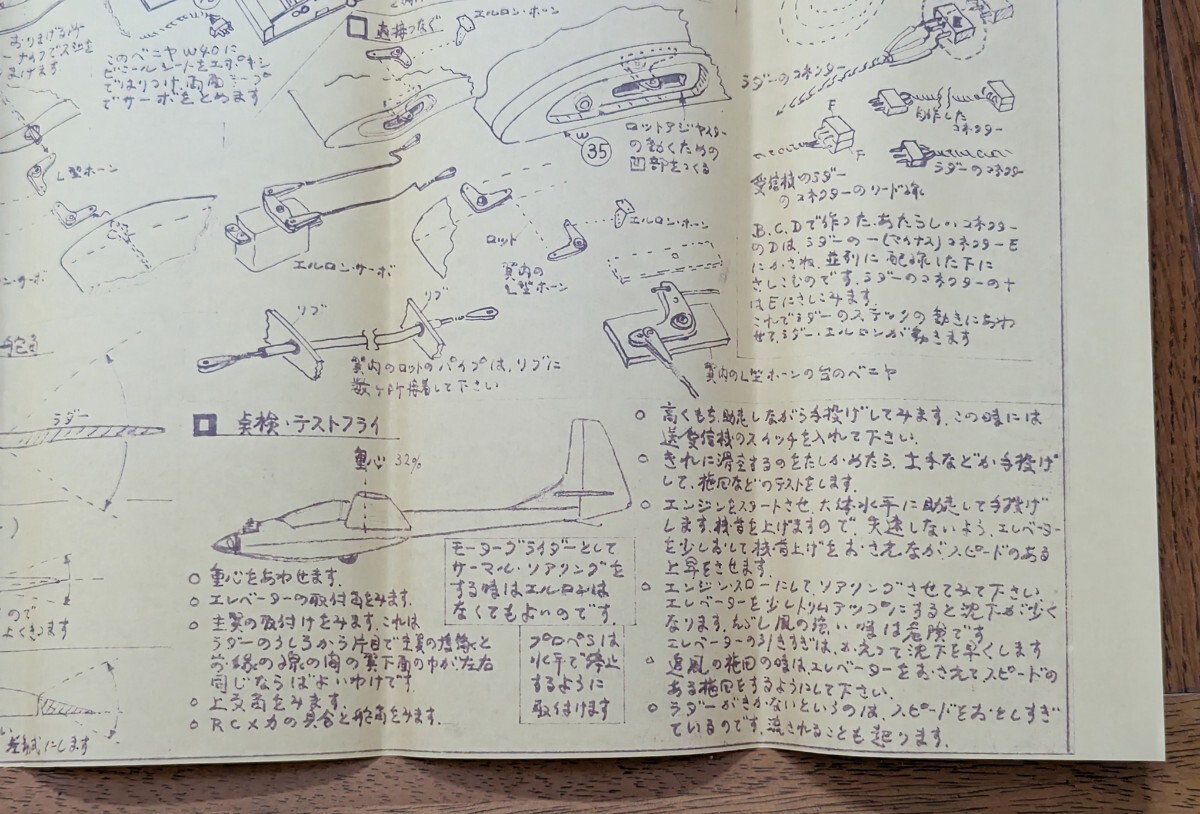 このベニヤW40に
ビニールシートをエポキシ
ではりつけ、両面テープ
でサーボをとめます
直接つなぐ
エルロン・ホーン
L型ホーン
35
ロットアジャスター
の動くための
凹部をつくる
ラダーのコネクター
F
F
自作した
コネクター
ラダーのコネクター
受信機のラダー
のコネクターのリード線
B.C.Dで作った、あたらしいコネクター
のDはラダーのー(マイナス)コネクターE
にかさね、並列に配線した下に
さしこむのです。ラダーのコネクターの+
はEにさしこみます。
これでラダーのスティックの動きにあわ
せて、ラダー、エルロンが動きます
エルロン・サーボ
ロット
翼内の
L型ホーン
エルロン・ホーン
リブ
リブ
翼内のロットのパイプは、リブに
数ヶ所接着して下さい
翼内のL型ホーンの台のベニヤ
ラダー
点検・テストフライ
重心 32%
モーターグライダーとして
サーマル・ソアリングを
する時はエルロンは
なくてもよいのです。
プロペラは
水平で停止
するように
取付けます
○ 重心をあわせます。
○ エレベーターの取付角をみます。
○ 主翼の取付けをみます。これは
ラダーのうしろから片目で主翼の後縁と
前縁の線の間の翼下面の巾が左右
同じならばよいわけです。
○ 上反角をみます。
○ RCメカの具合と舵角をみます。
○ 高くもち、助走しながら手投げしてみます。この時には
送受信機のスイッチを入れて下さい。
○ きれに滑空するのをたしかめたら、土手などか手投げ
して、旋回などのテストをします。
○ エンジンをスタートさせ、大体水平に助走して手投げ
します。機首を上げますので、失速しないよう、エレベーター
を少しおして機首上げをおさえながら、スピードのある
上昇をさせます。
○ エンジン・スローにして、ソアリングさせてみて下さい。
エレベーターを少しトリムアップにすると沈下が少く
なります。んし風の強い時は危険です
エレベーターの引きすぎは、かえって沈下を早くします
○ 追風の旋回の時は、エレベーターをおさえてスピードの
ある旋回をするようにして下さい。
○ ラダーがきかないというのは、スピードをおとしすぎ
ているのです。流されることも起ります。
差動にします